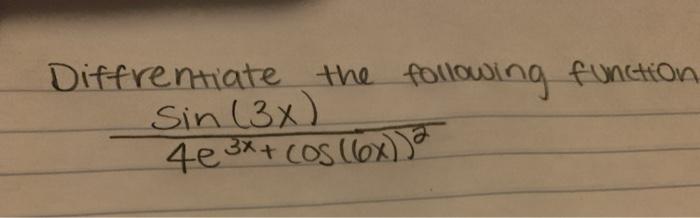 Diffrentiate the following function
Sin(3x)
4e^3x + cos((6x))^2